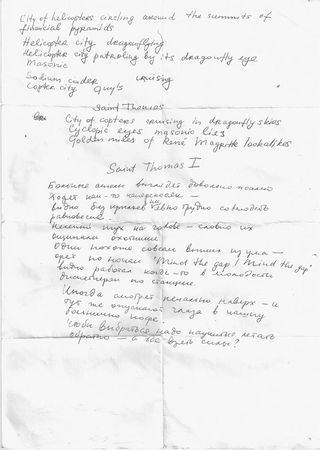 City of helicopters circling around the summits of
financial pyramids
Helicopter city dragonflying
Helicopter city patroling by its dragonfly eye
Masonic
Sodium under cruising
Copter city Guy's
Saint Thomas
City of copters cruising in dragonfly skies
Cyclopic eyes masonic lies
Golden miles of René Magritte lookalikes
Saint Thomas I
Больные ангелы выглядят довольно жалко
Ходят как-то наперекосяк —
видно без крыльев им трудно соблюдать
равновесие.
Нелепый пух на голове — словно их
ощипали охотники
Один похоже совсем выжил из ума —
орет по ночам "Mind the gap! Mind the gap"
видно работал когда-то в молодости
диспетчером по станции.
Иногда смотрят печально наверх — и
тут же опускают глаза в чашку
больничного кофе.
Чтобы выбраться надо научиться летать
обратно — а где взять силы?